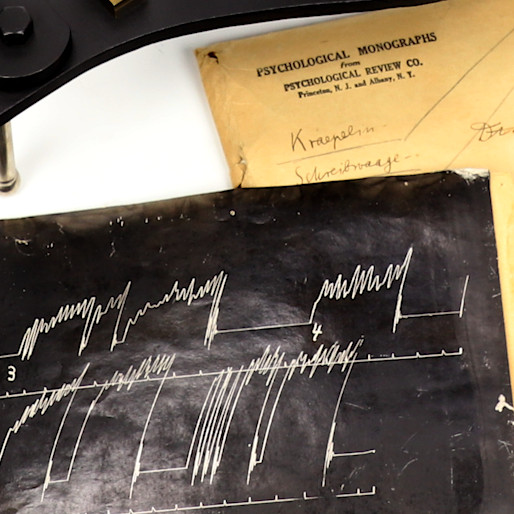 PSYCHOLOGICAL MONOGRAPHS
from
PSYCHOLOGICAL REVIEW CO.
Princeton, N. J. and Albany, N. Y.
Kraepelin
Dr.
Schreibwaage
4
3